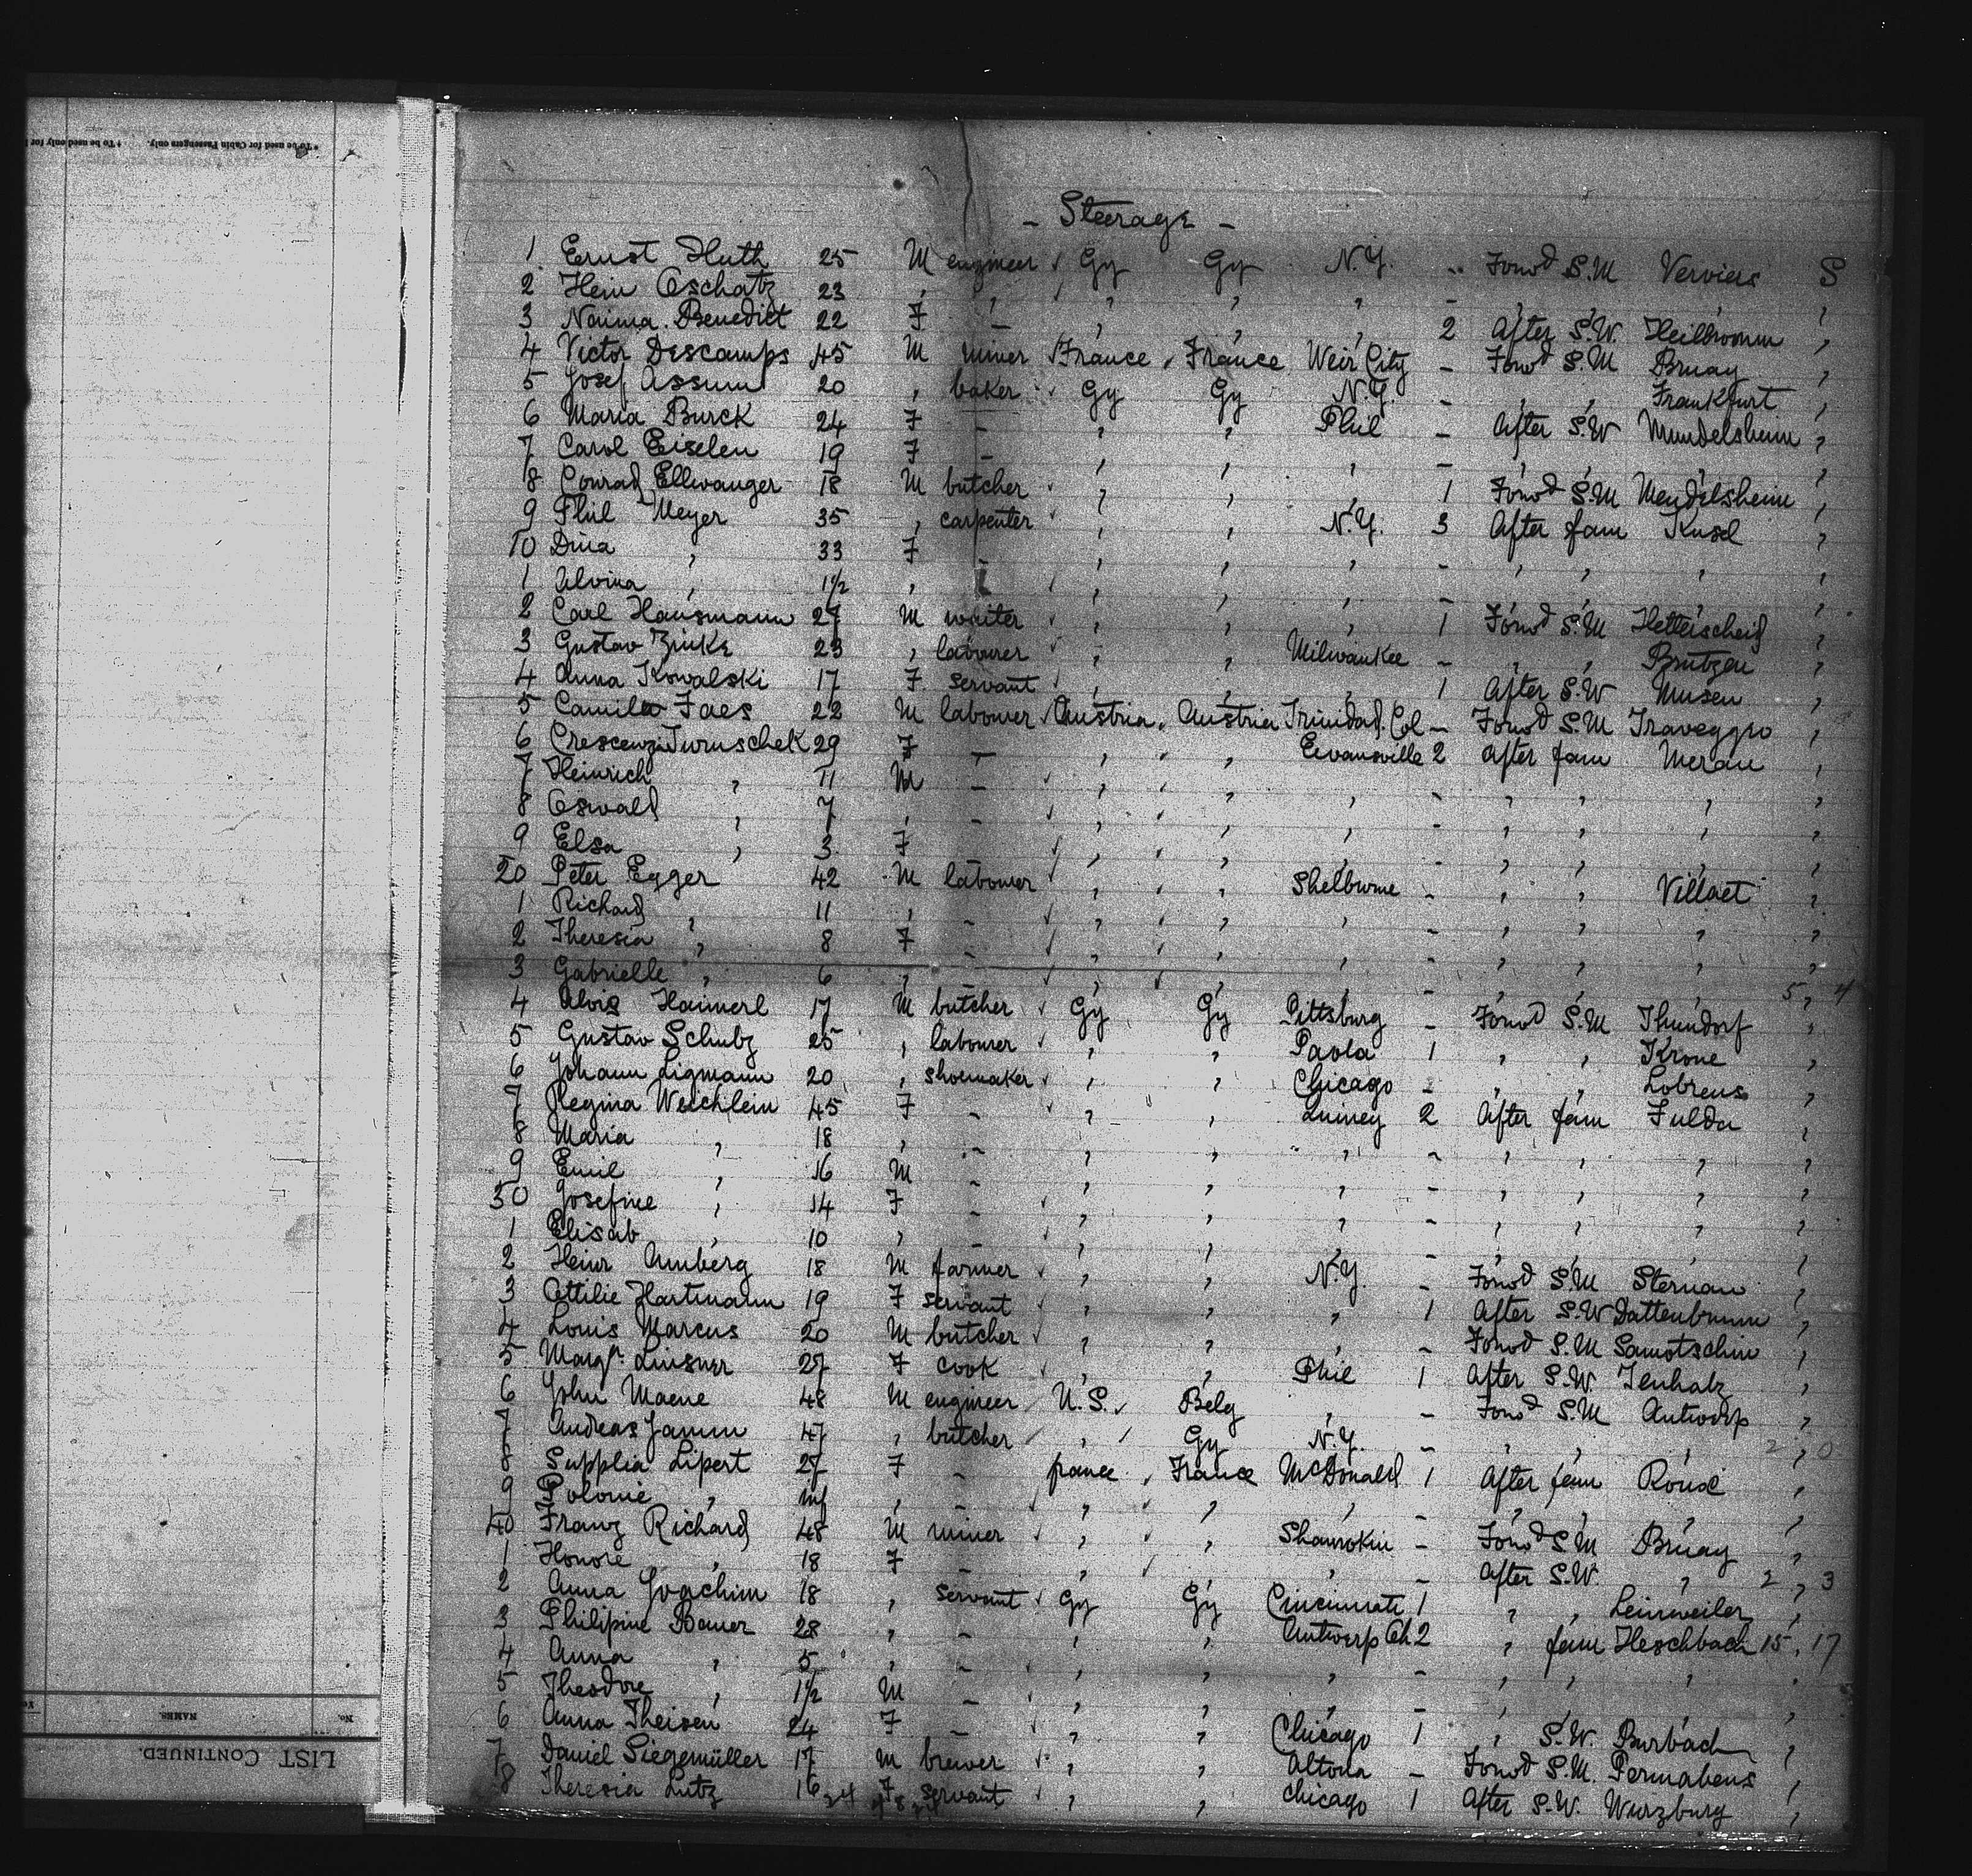 * To be used for Cabin Passengers only. † To be used only for
LIST CONTINUED.
No. NAMES.
- Steerage -
1 Ernst Huth 25 M engineer ✓ Gy Gy N.Y. - Forwd S.M Verviers S
2 Hein Oschatz 23 , , ✓ , , , - , , , ,
3 Naima Benedict 22 F - , , , 2 After S.W. Heilbronn ,
4 Victor Descamps 45 M miner ✓ France , France Weir City - Forwd S.M Bruay ,
5 Josef Assum 20 , baker ✓ Gy Gy N.Y. - , , Frankfurt ,
6 Maria Burck 24 F - , , Phil - After S.W Mundelsheim ,
7 Carol Eiselen 19 F - , , , - , , , ,
8 Conrad Ellwanger 18 M butcher ✓ , , , 1 Forwd S.M Mendelsheim ,
9 Phil Meyer 35 , carpenter ✓ , , N.Y. 3 After fam Kusel ,
10 Dina , 33 F - , , , - , , , ,
1 Alvina , 1½ , ✓ , , , - , , , ,
2 Carl Hausmann 27 M waiter ✓ , , , 1 Forwd S.M Hetterscheid ,
3 Gustav Zinke 23 , labourer ✓ , , Milwaukee - , , ,
4 Anna Kowalski 17 F servant ✓ , , , 1 After S.W Musen ,
5 Camillo Faes 22 M labourer ✓ Austria , Austria Trinidad. Col - Forwd S.M Traveggio ,
6 Crescenzia Turnschek 29 F - , , Eevansville 2 After fam Meran ,
7 Heinrich , 11 M - ✓ , ✓ , , - , , , ,
8 Oswald , 7 , - ✓ , ✓ , , - , , , ,
9 Elsa , 3 F ✓ , ✓ , , - , , , ,
20 Peter Egger 42 M labourer ✓ , ✓ , Shelburne - , , Villaet ,
1 Richard , 11 , - ✓ , ✓ , , - , , , ,
2 Theresia , 8 F - ✓ , ✓ , , - , , , ,
3 Gabrielle , 6 , - ✓ , ✓ , , - , , , 5, 4
4 Alois Haimerl 17 M butcher ✓ Gy Gy Pittsburg - Forwd S.M Thundorf ,
5 Gustav Schulz 25 , labourer ✓ , , Paola 1 , , Krone ,
6 Johann Ligmann 20 , shoemaker ✓ , , Chicago - , , Lobrens ,
7 Regina Weichlein 45 F - ✓ , , 2 After fam Fulda ,
8 Maria , 18 , - , , , - , , , ,
9 Emil , 16 M - , , , - , , , ,
30 Josefine , 14 F - ✓ , , , - , , , ,
1 Elisab , 10 , - ✓ , , , - , , , ,
2 Heinr Amberg 18 M farmer ✓ , , N.Y. - Forwd S.M Sternau ,
3 Ottilie Hartmann 19 F servant ✓ , , , 1 After S.W Dattenbrunn ,
4 Louis Marcus 20 M butcher ✓ , , , - Forwd S.M Samotschin ,
5 Margt. Linsner 27 F cook ✓ , , Phil 1 After S.W. ,
6 John Maene 48 M engineer ✓ U.S. ✓ Belg , - Forwd S.M Antwerp ,
7 Andreas Jamm 47 , butcher ✓ , ✓ Gy N.Y. - , , , 2, 0
8 Supplia Lipert 27 F - france , France McDonald 1 After fam Roux ,
9 Polonie , inf , - , ✓ , , - , , , ,
40 Franz Richard 48 M miner ✓ , ✓ , Shamokin - Forwd S.M Bruay ,
1 Honore , 18 F - , ✓ , , - After S.W. , 2, 3
2 Anna Joachim 18 , servant ✓ Gy Gy Cincinnati 1 , , Leinweiler ,
3 Philipine Bauer 28 , - , , Antwerp Oh 2 , fam Heschbach 15, 17
4 Anna , 5 , - ✓ , , , - , , , ,
5 Theodore , 1½ M - ✓ , , , - , , , ,
6 Anna Theisen 24 F - , , Chicago 1 , S.W. Burbach ,
7 Daniel Siegemüller 17 M brewer ✓ , , Altona - Forwd S.M. Permabens ,
8 Theresia Lutz 16 F servant ✓ , , Chicago 1 After S.W. Wurzburg ,